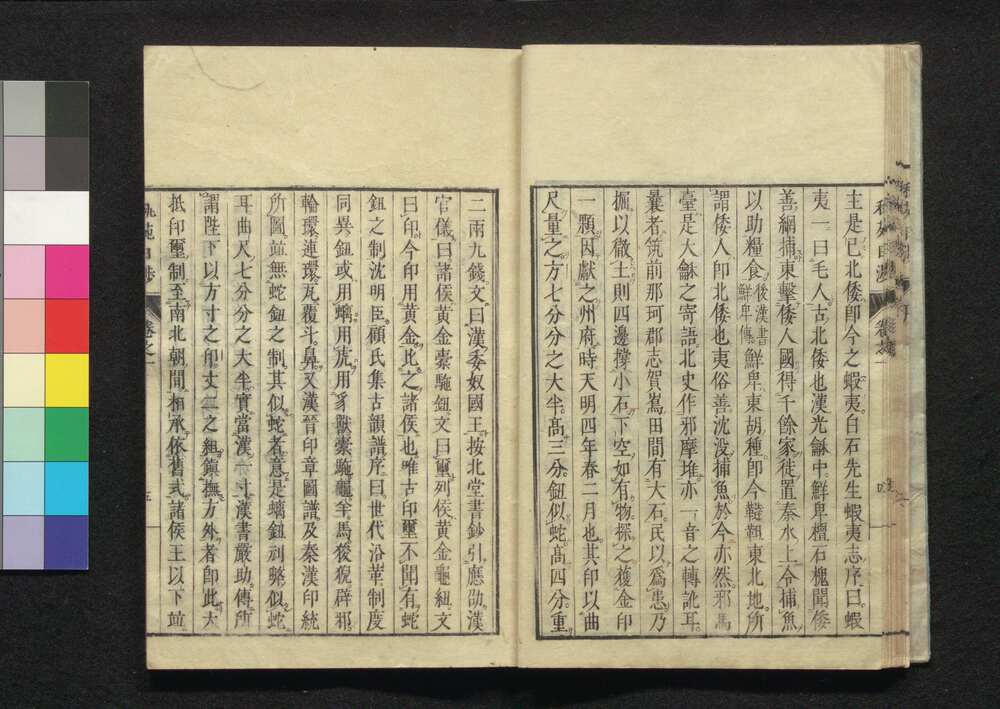 主是已北倭卽今之蝦夷白石先生蝦夷志序曰蝦
夷一曰毛人古北倭也漢光龢中鮮卑檀石槐聞倭
善綱捕東擊倭人國得千餘家徙置秦水上令捕魚
以助糧食後漢書鮮卑傳鮮卑東胡種卽今韃靼東北地所
謂倭人卽北倭也夷俗善沈没捕魚於今亦然邪馬
臺是大龢之寄語北史作邪摩堆亦一音之轉訛耳
曩者筑前那珂郡志賀嶌田間有大石民以爲患乃
掘以徹土則四邊撐小石下空如有物探之獲金印
一顆因獻之州府時天明四年春二月也其印以曲
尺量之方七分分之大半高三分鈕似蛇高四分重
二兩九錢文曰漢委奴國王按北堂書鈔引應劭漢
官儀曰諸侯黃金橐駞鈕文曰璽列侯黃金龜紐文
曰印今印用黃金比之諸侯也唯古印璽不聞有蛇
鈕之制沈明臣顧氏集古韻譜序曰世代沿革制度
同異鈕或用螭用虎用豸獸橐駞龜羊馬狻猊辟邪
輪環連環瓦覆斗鼻又漢晉印章圖譜及秦漢印統
所圖竝無蛇鈕之制其似蛇者意是螭鈕刓略似蛇
耳曲尺七分分之大半實當漢一寸漢書嚴助傳所
謂陛下以方寸之印丈二之組鎭撫方外者卽此大
抵印璽制至南北朝間相承依舊式諸侯王以下竝